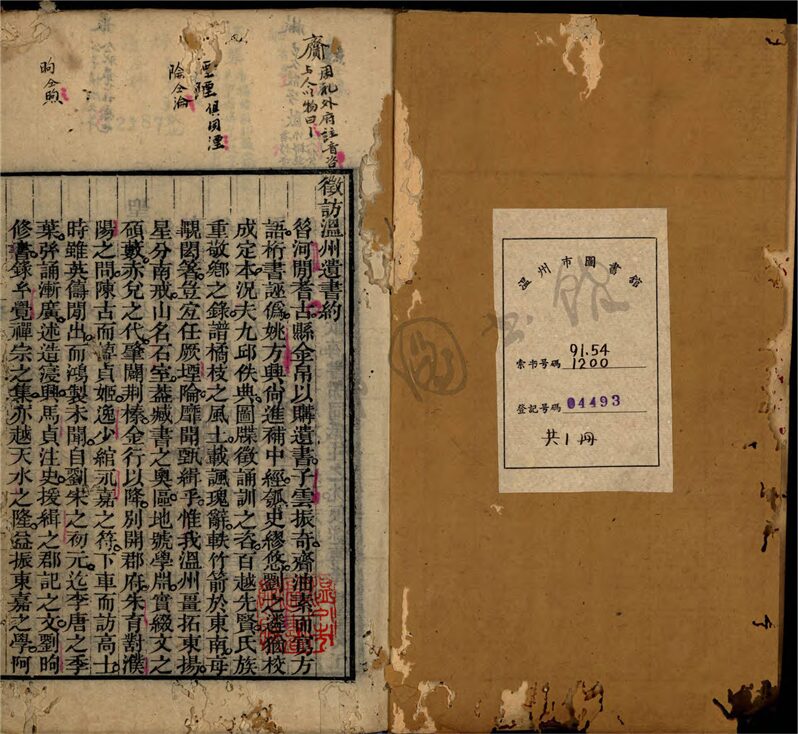 齎
周礼外府註音咨
与人以物曰丨
垔堙 俱同湮
陯仝淪
昫仝煦
徵訪溫州遺書約
㫺河閒耆古縣金帛以購遺書子雲振奇齎油素而寫方
語桁書誣僞姚方興尙進補中經瓠史繆悠劉之遴猶校
成定本況夫九邱佚典圖牒徵誦訓之咨百越先賢氏族
重敬鄕之錄譜橘枝之風土載諷瑰辭軼竹箭於東南毋
覩閎箸豈宜任厥堙陯靡聞甄緝乎惟我溫州畺拓東揚
星分南戒山名石室葢臧書之奧區地號學淵實綴文之
碩藪亦兌之代肇闢荆榛金行以降別開郡府朱育對濮
陽之問陳古而諱貞姬逸少綰元嘉之符下車而訪高士
時雖英儁閒出而鴻製未聞自劉朱之初元迄李唐之季
葉弦誦漸廣述造寖興馬貞注史援緝之郡記之文劉昫
修書錄玄覺禪宗之集亦越天水之隆益振東嘉之學阿
溫州市圖書館
索书号碼 91.54
1200
登記号碼 04493
共1冊